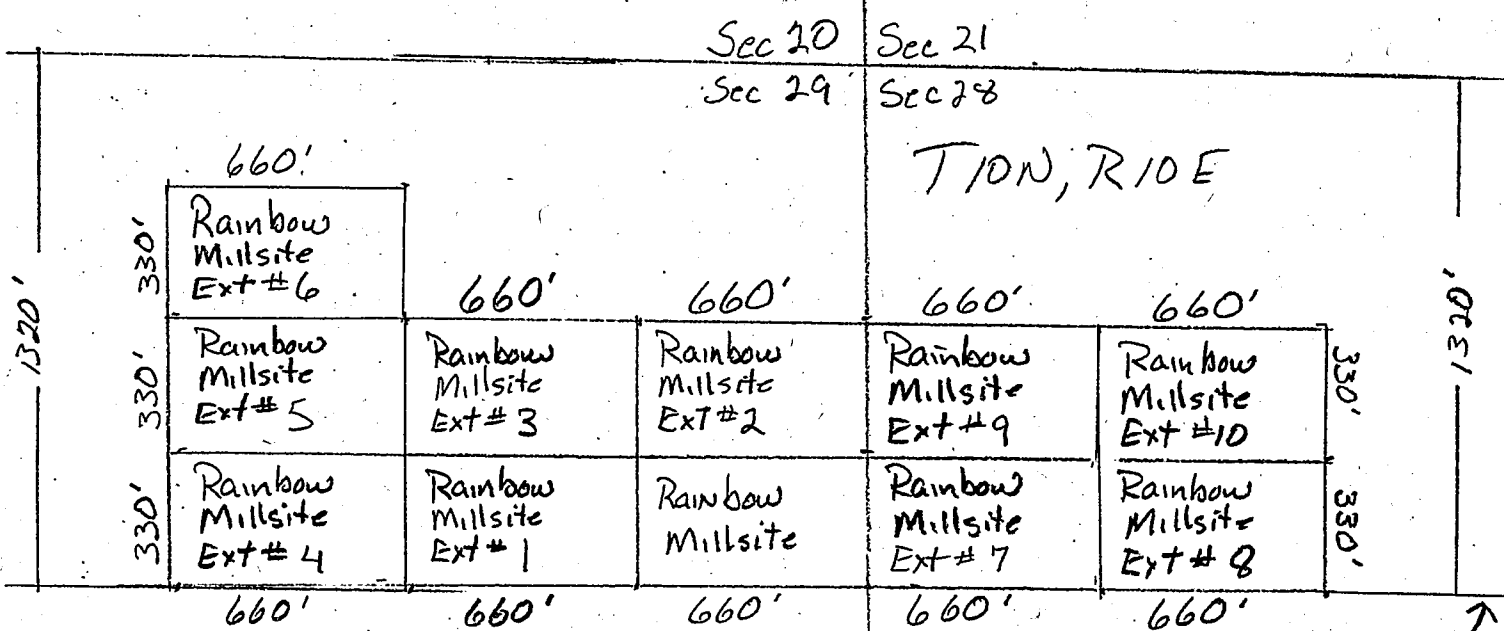 Sec 20 Sec 21
Sec 29 Sec 28
T10N, R10E
660'
1320'
330'
Rainbow
Millsite
Ext #6
1320'
660' 660' 660' 660'
330'
Rainbow
Millsite
Ext # 5
Rainbow
Millsite
Ext # 3
Rainbow
Millsite
ExT #2
Rainbow
Millsite
Ext #9
Rainbow
Millsite
Ext #10
330'
330'
Rainbow
Millsite
Ext # 4
Rainbow
Millsite
Ext # 1
Rainbow
Millsite
Rainbow
Millsite
Ext # 7
Rainbow
Millsite
Ext # 8
330'
660' 660' 660' 660' 660'